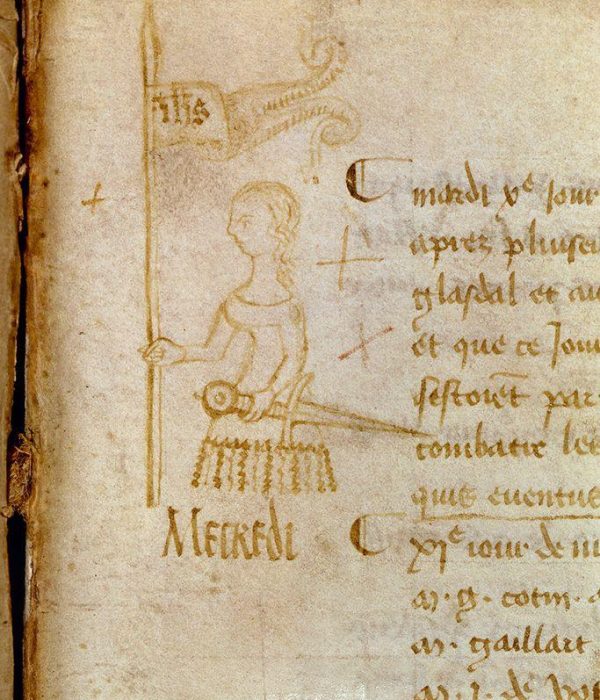 ihs
mardi xe jour
aprez pluseu
glasdal et au
et que ce Jour
sestoiet par
combatre les
quis euentus
Mecredi
xje iour de m
m. g. cotin.
m. gaillart